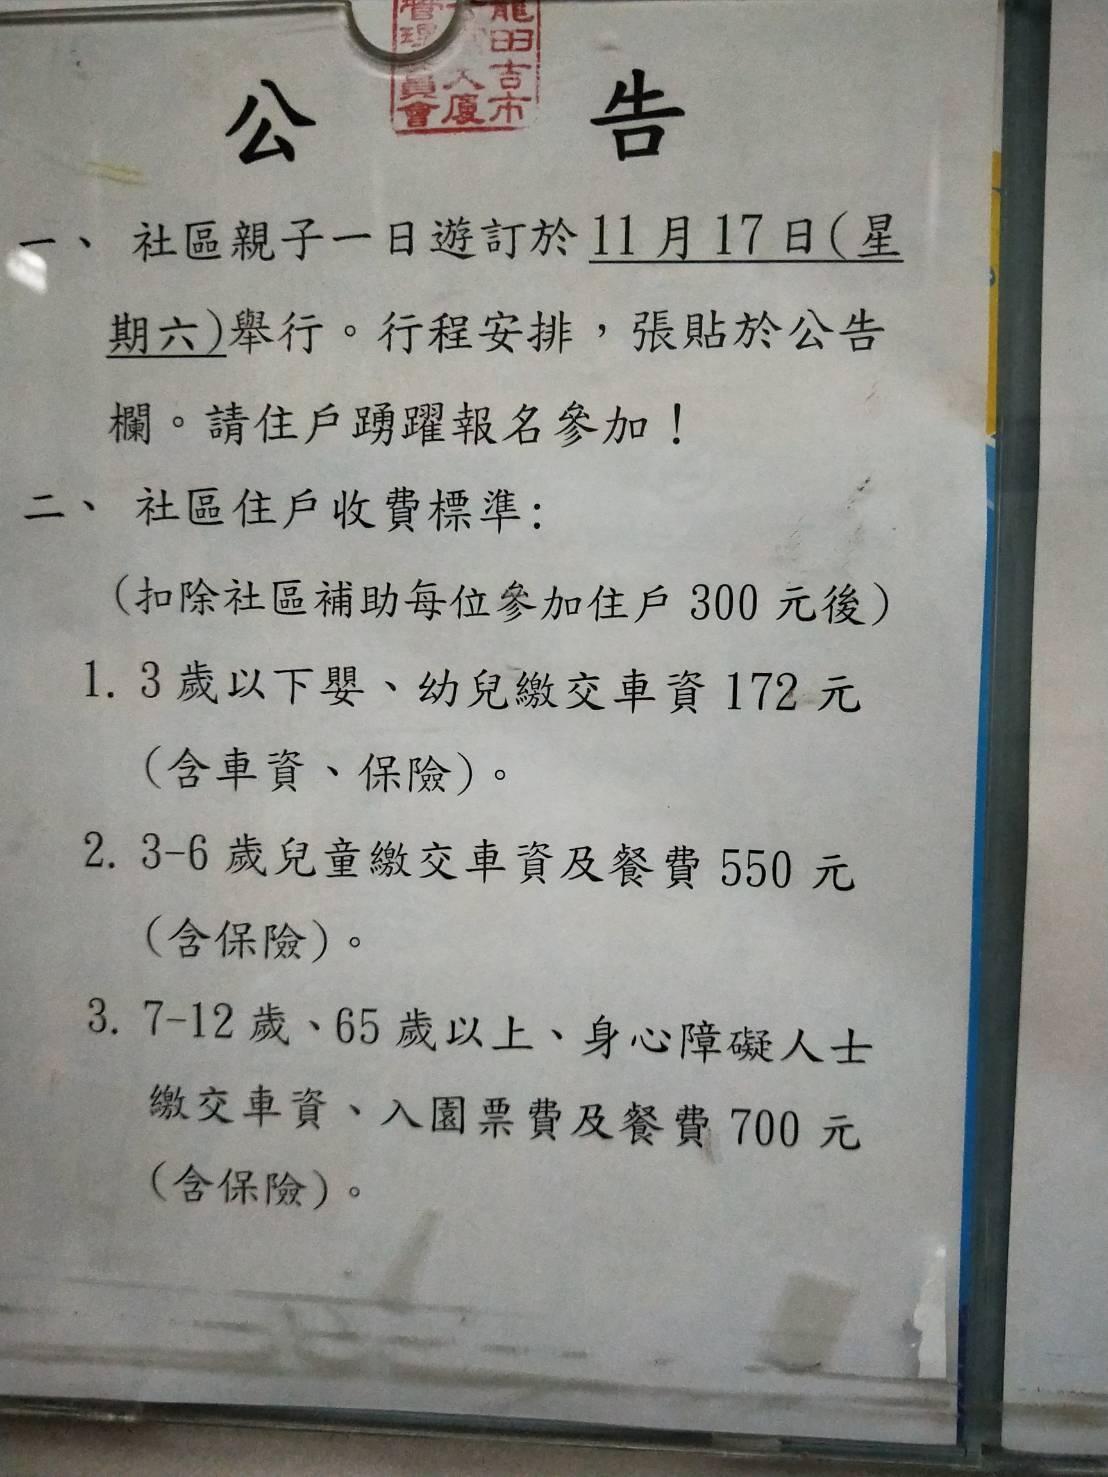 公告
一、 社區親子一日遊訂於 11 月 17 日(星
期六)舉行。行程安排,張貼於公告
欄。請住戶踴躍報名參加!
二、 社區住戶收費標準:
(扣除社區補助每位參加住戶 300 元後)
1. 3 歲以下嬰、幼兒繳交車資 172 元
(含車資、保險)。
2. 3-6 歲兒童繳交車資及餐費 550 元
(含保險)。
3. 7-12 歲、65 歲以上、身心障礙人士
繳交車資、入園票費及餐費 700 元
(含保險)。